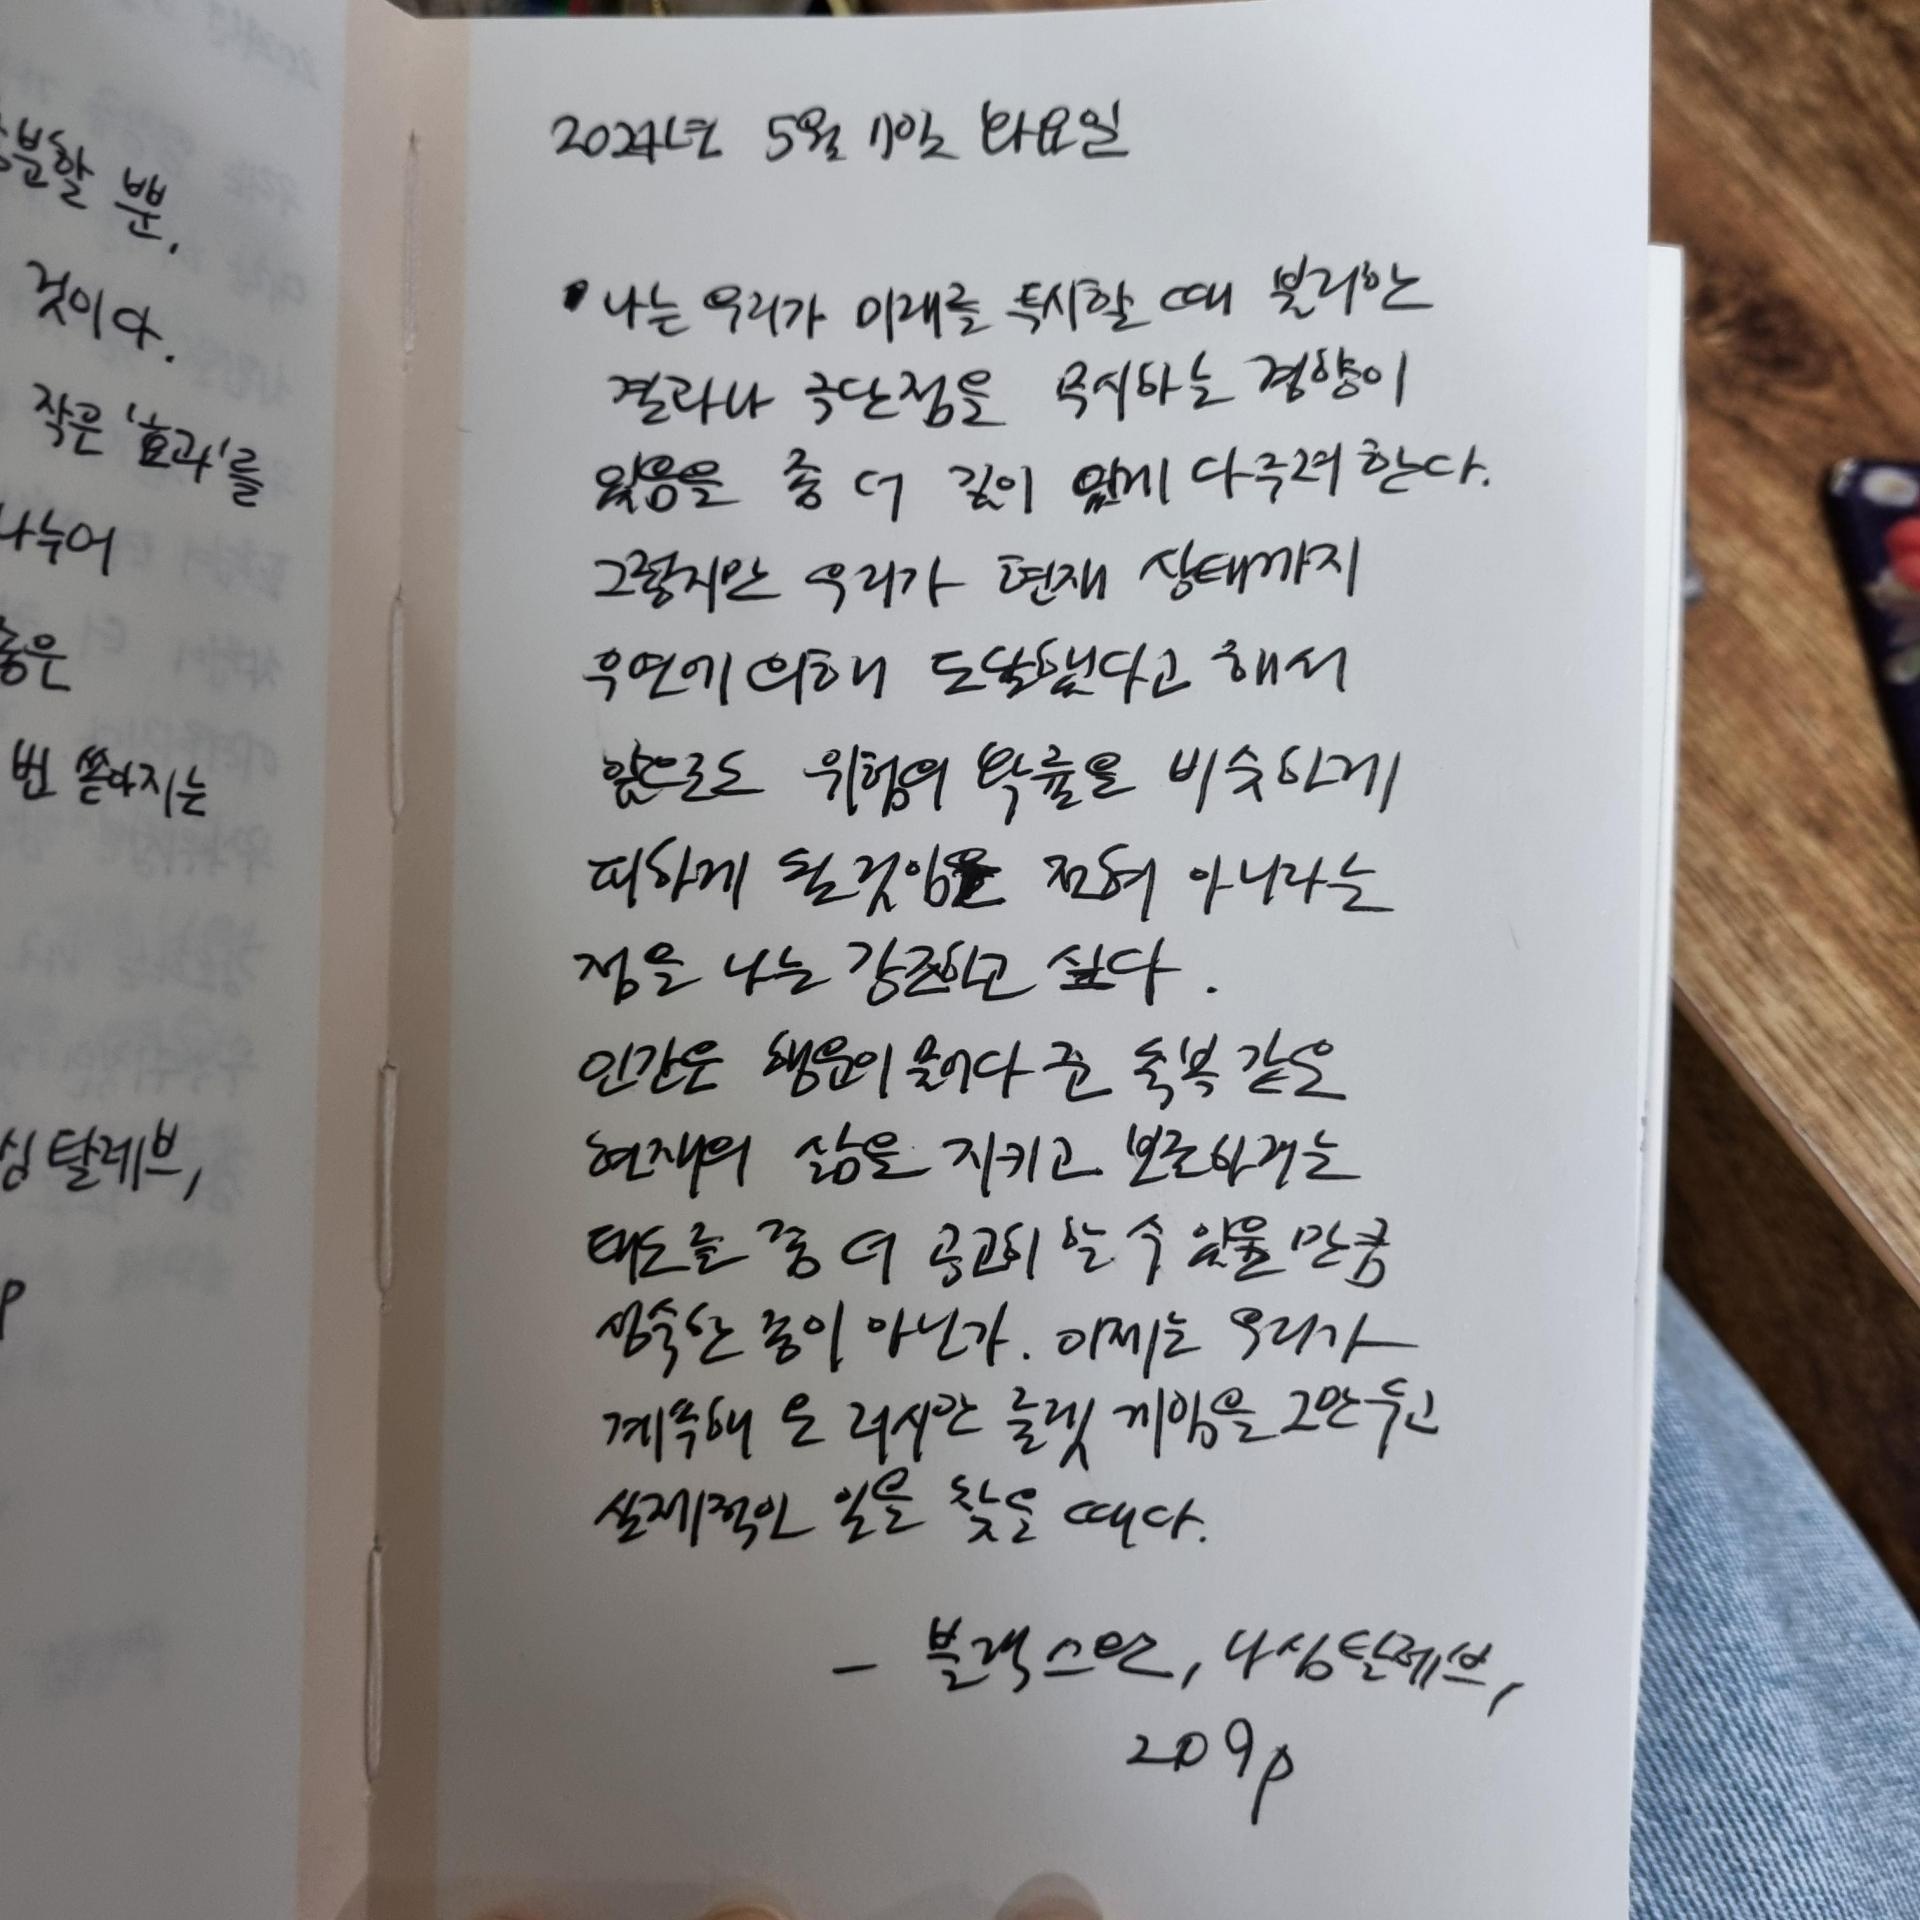 충분할 뿐.
것이다.
작은 '효과'를
나누어
좋은
번 쏟아지는
심 탈레브,
p
2024년 5월 7일 화요일
• 나는 우리가 미래를 투시할 때 불리한
결과나 극단점을 무시하는 경향이
있음을 좀 더 깊이 있게 다루려 한다.
그렇지만 우리가 현재 상태까지
우연에 의해 도달했다고 해서
앞으로도 위험의 확률을 비슷하게
피하게 될 것임은 전혀 아니라는
점을 나는 강조하고 싶다.
인간은 행운이 물어다 준 축복 같은
현재의 삶을 지키고 보존하려는
태도를 좀 더 공고히 할 수 있을 만큼
성숙한 종이 아닌가. 이제는 우리가
계속해 온 러시안 룰렛 게임을 그만두고
실제적인 일을 찾을 때다.
- 블랙스완, 나심탈레브,
209p